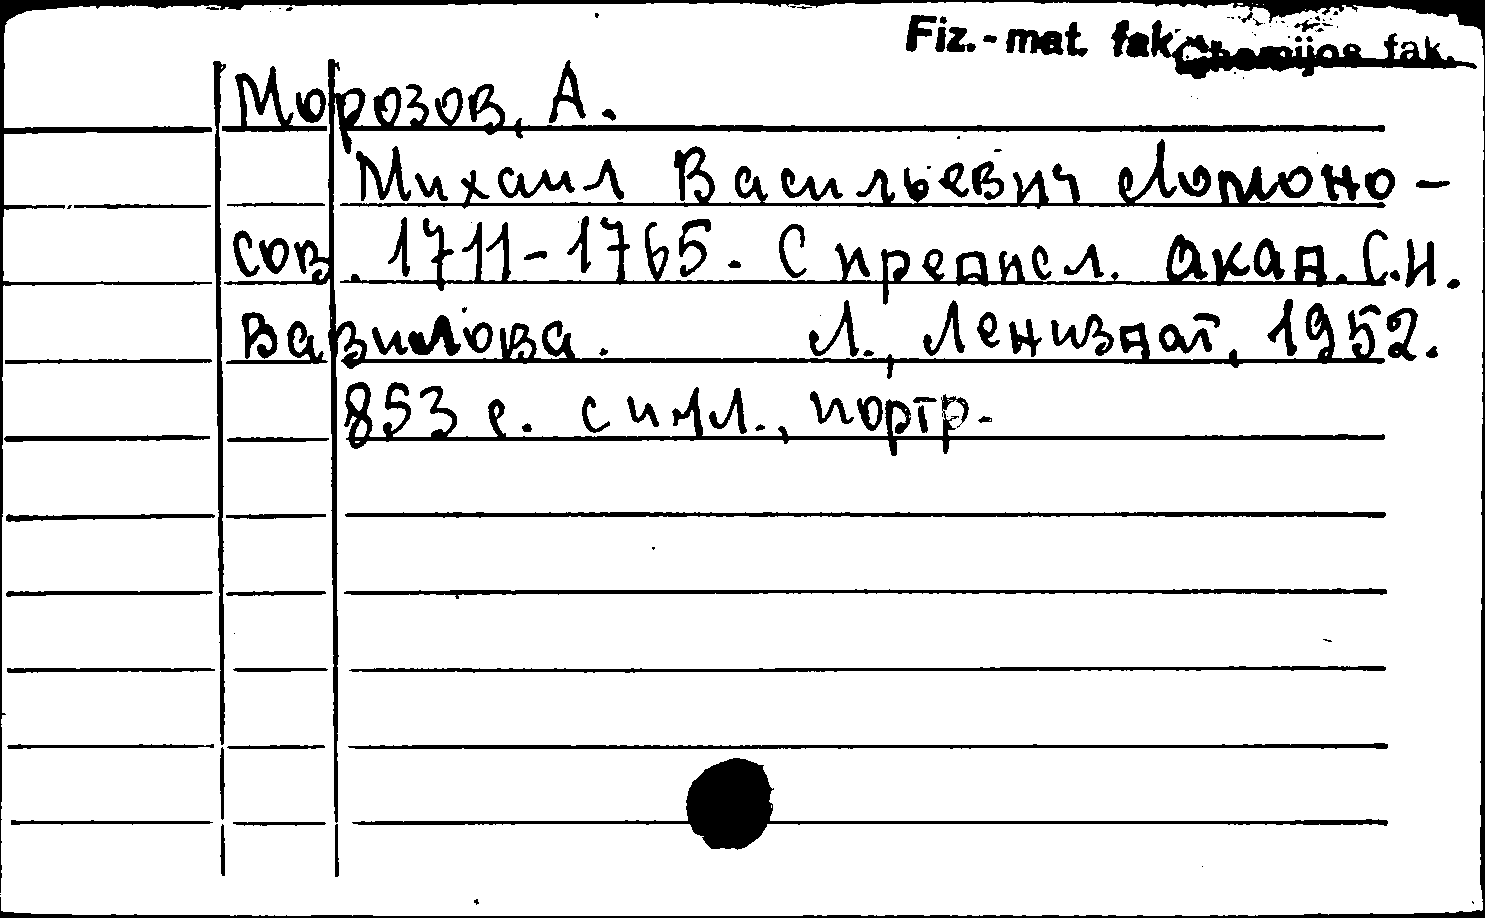 Fiz.-mat. fak. Chemijos fak.
Морозов, А.
Михаил Васильевич Ломоно-
сов. 1711-1765. С предисл. акад. С.И.
Вавилова. Л., Лениздат, 1952.
853 с. с илл., портр.